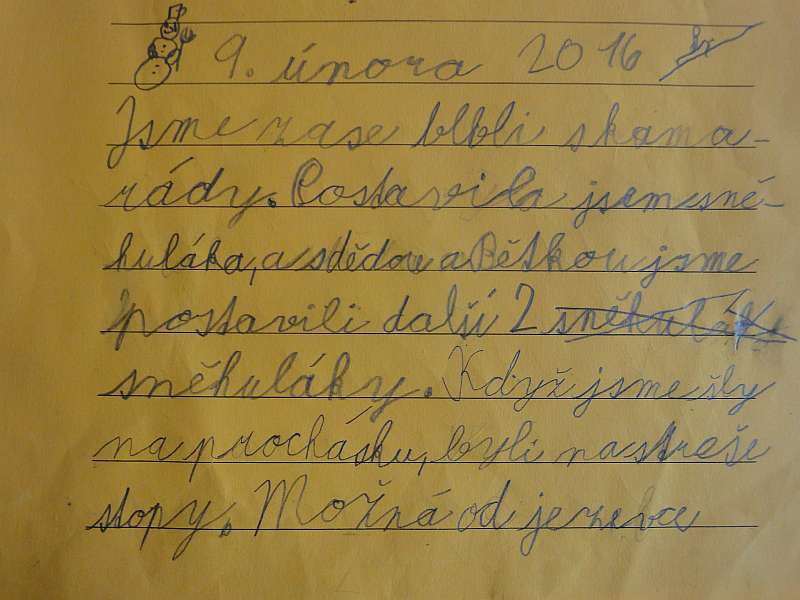 9. února 2016
Jsme zase blbli s kama-
rády. Postavila jsem sně-
huláka, a s dědou a Bětkou jsme
postavili další 2 sněhuláky
sněhuláky. Když jsme šly
na prochásku, byli na straše
stopy. Možná od jezevce